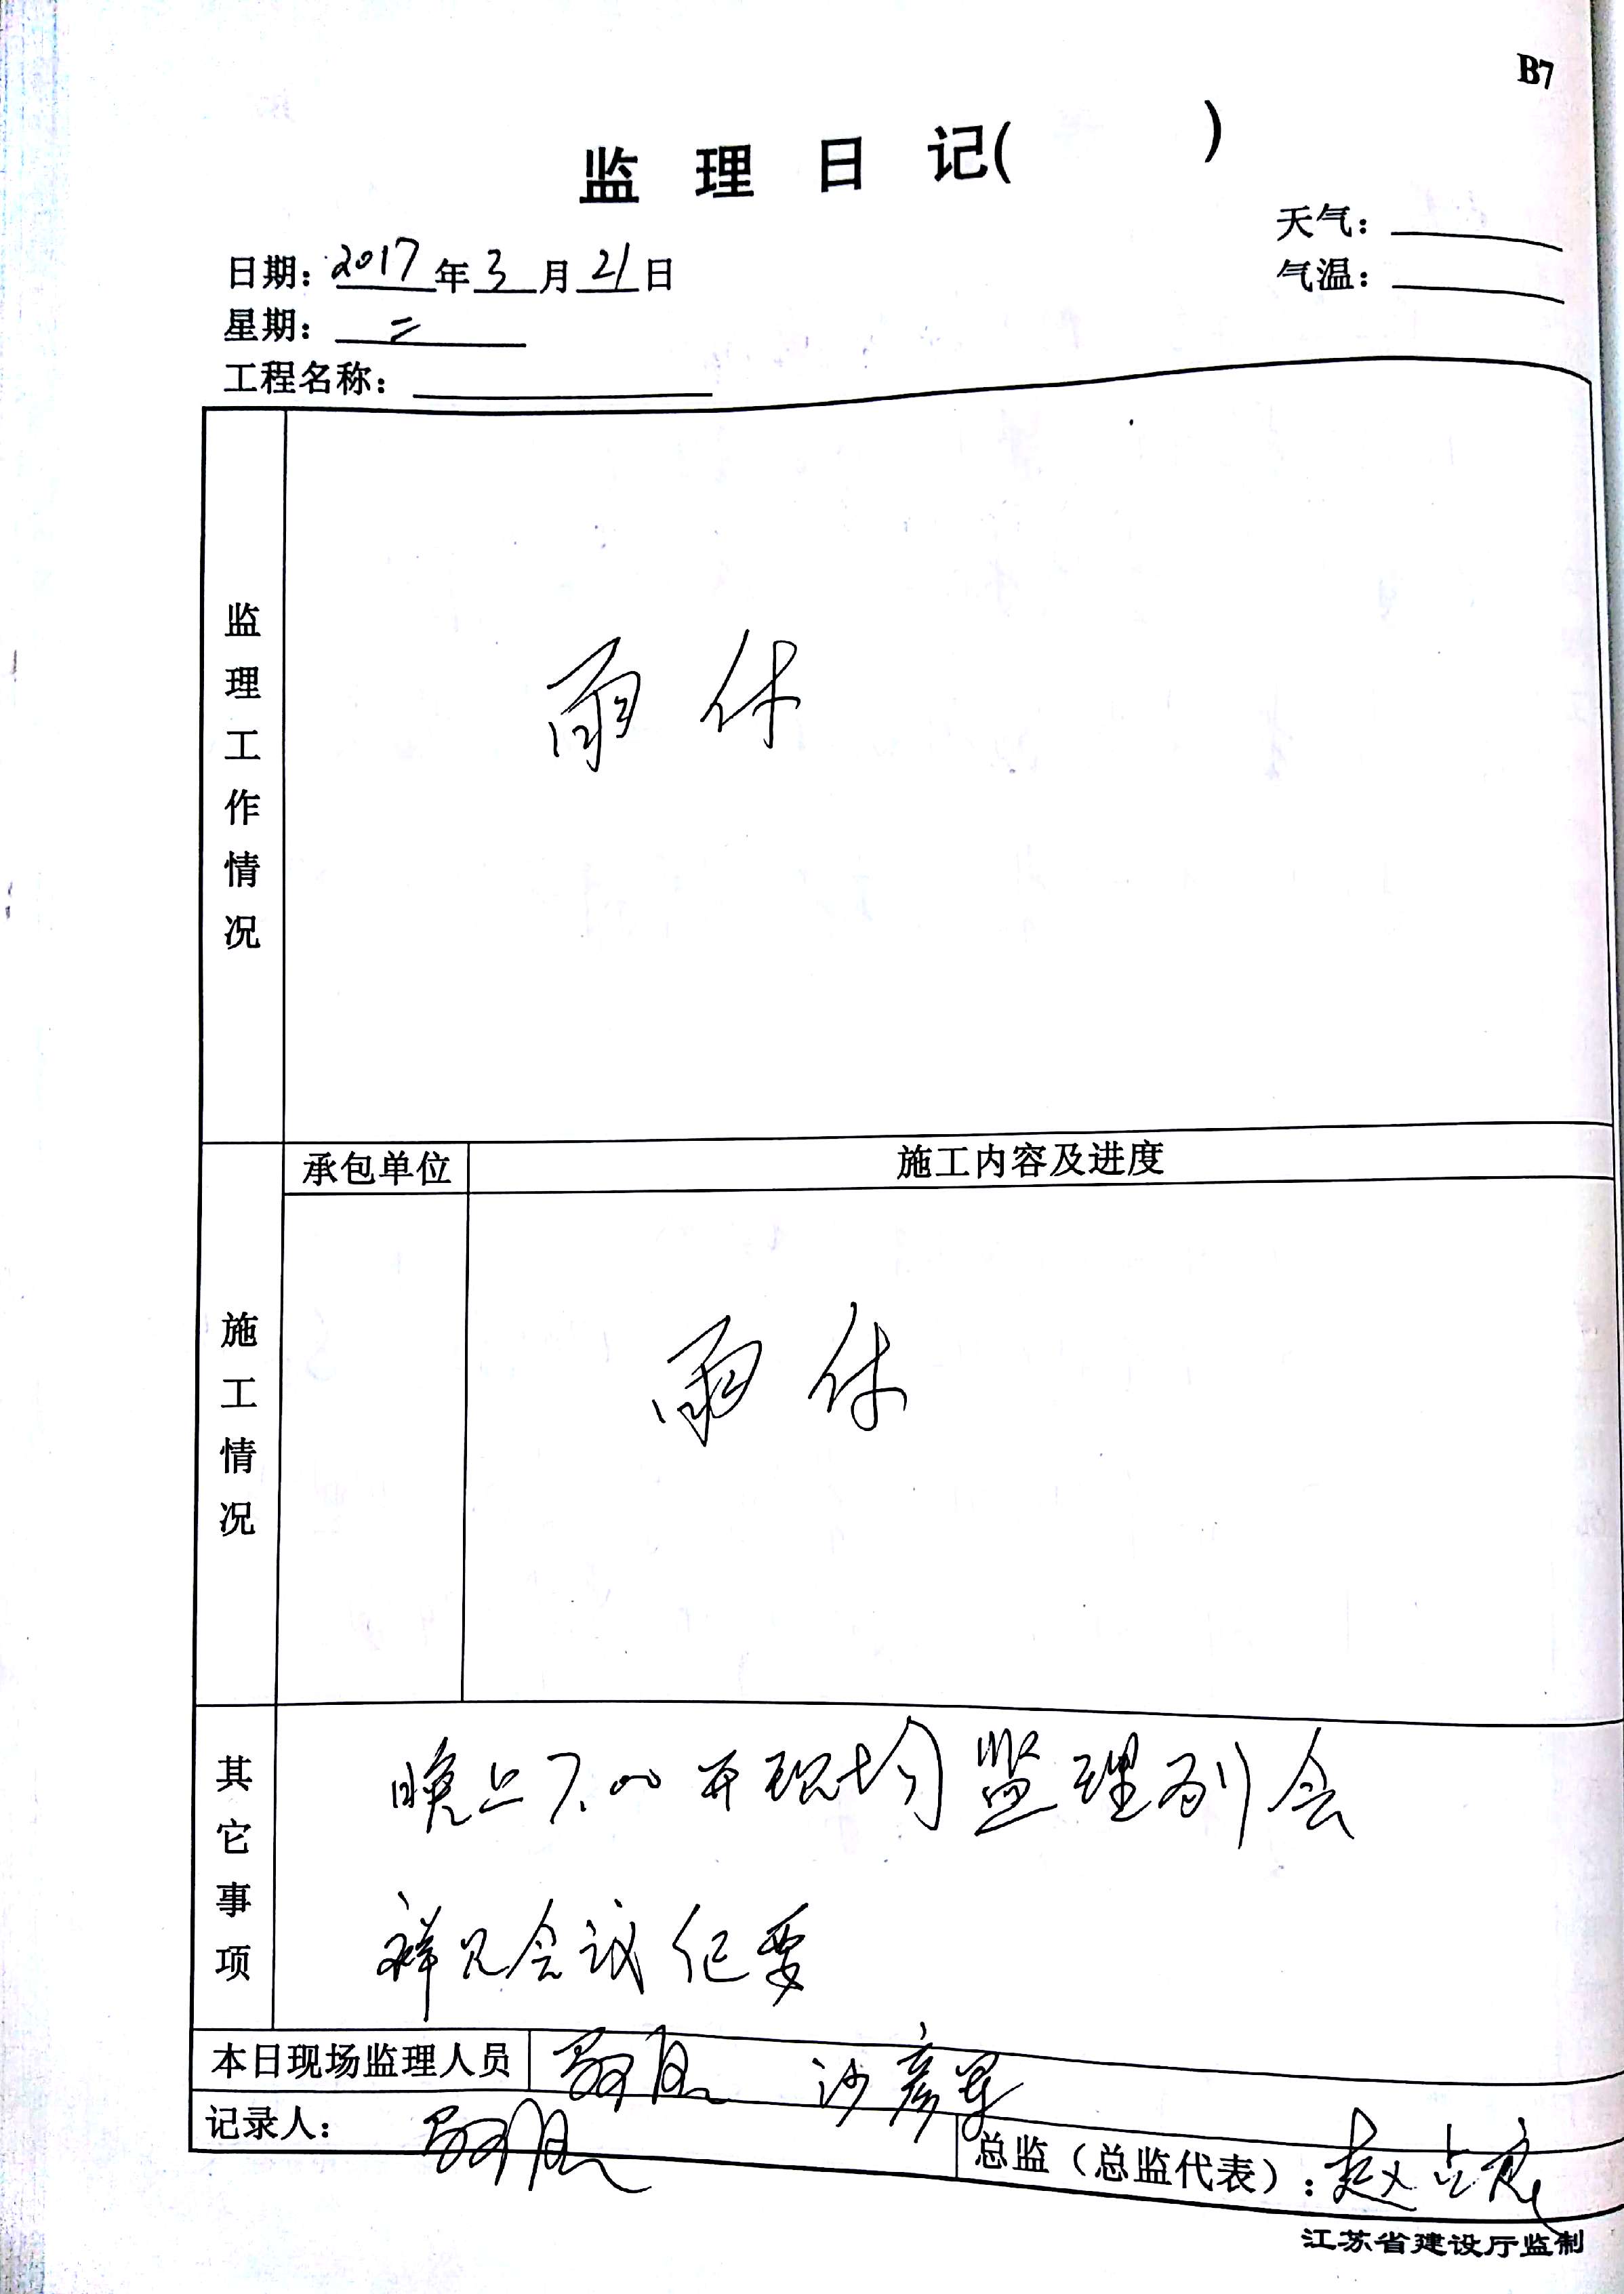 B7
监理日记( )
天气：
日期：2017年3月21日
气温：
星期：二
工程名称：
监理工作情况
雨休
承包单位 施工内容及进度
施工情况
雨休
其它事项
晚上7.00开现场监理例会
祥见会议纪要
本日现场监理人员 沙彦军
记录人：
总监（总监代表）：赵
江苏省建设厅监制